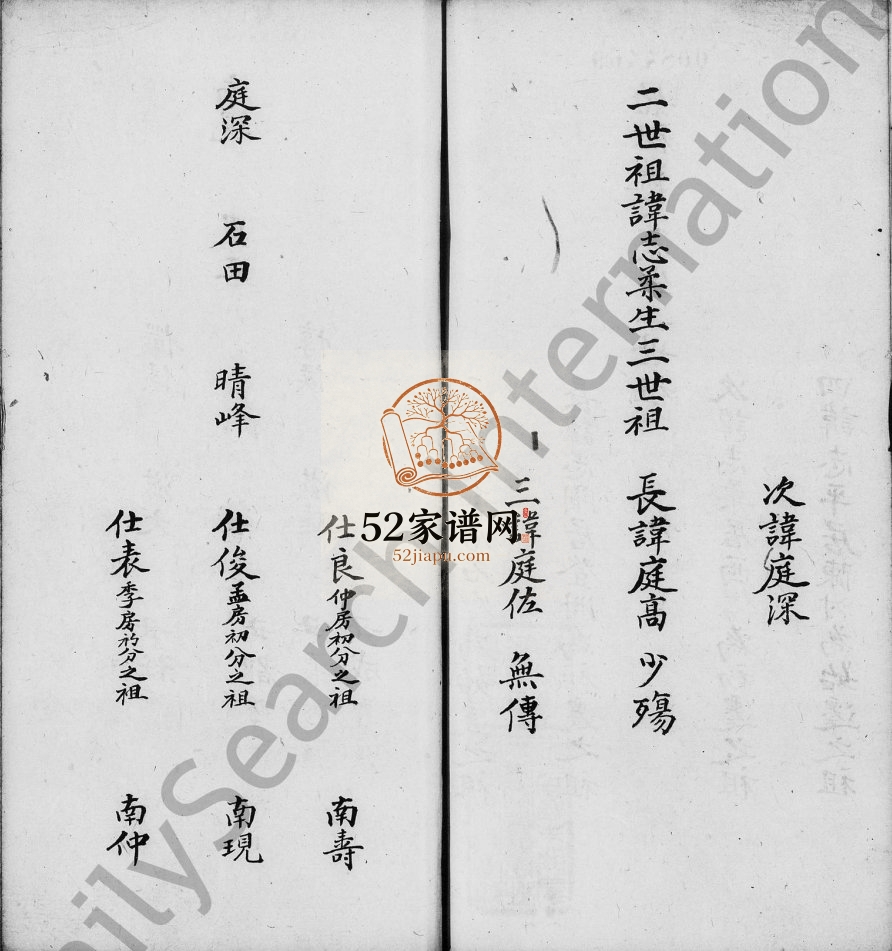 次諱庭深
二世祖諱志柔生三世祖 長諱庭高 少殤
三諱庭佐 無傳
仕良仲房初分之祖 南壽
庭深 石田 晴峰 仕俊孟房初分之祖 南現
仕表季房初分之祖 南仲
52家谱网
52jiapu.com
ilySearch International